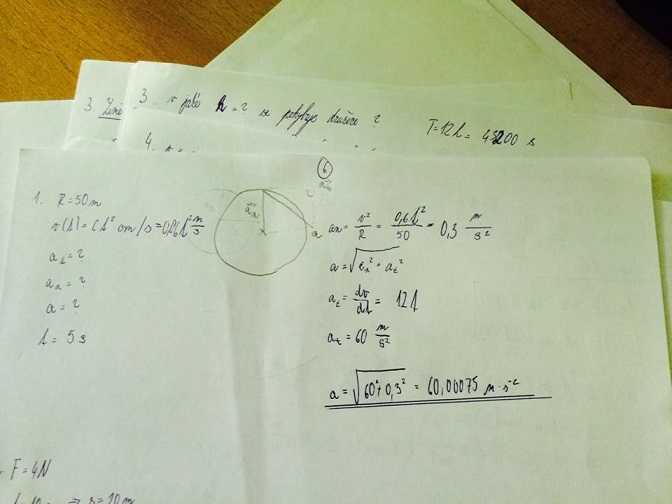 3. 
3. v jaké h = ? se pohybuje družice ?
T=12h = 43200 s
4.
6
1. R = 50 m
v(t) = 6t² cm/s = 0,06t² m/s
a_t = ?
a_n = ?
a = ?
t = 5 s
a_n
a
a_n = v²/R = 0,6t²/50 = 0,3 m/s²
a = √a_n² + a_t²
a_t = dv/dt = 12t
a_t = 60 m/s²
a = √60² + 0,3² = 60,00075 m·s⁻²
F = 4N
⇒ s = 20m